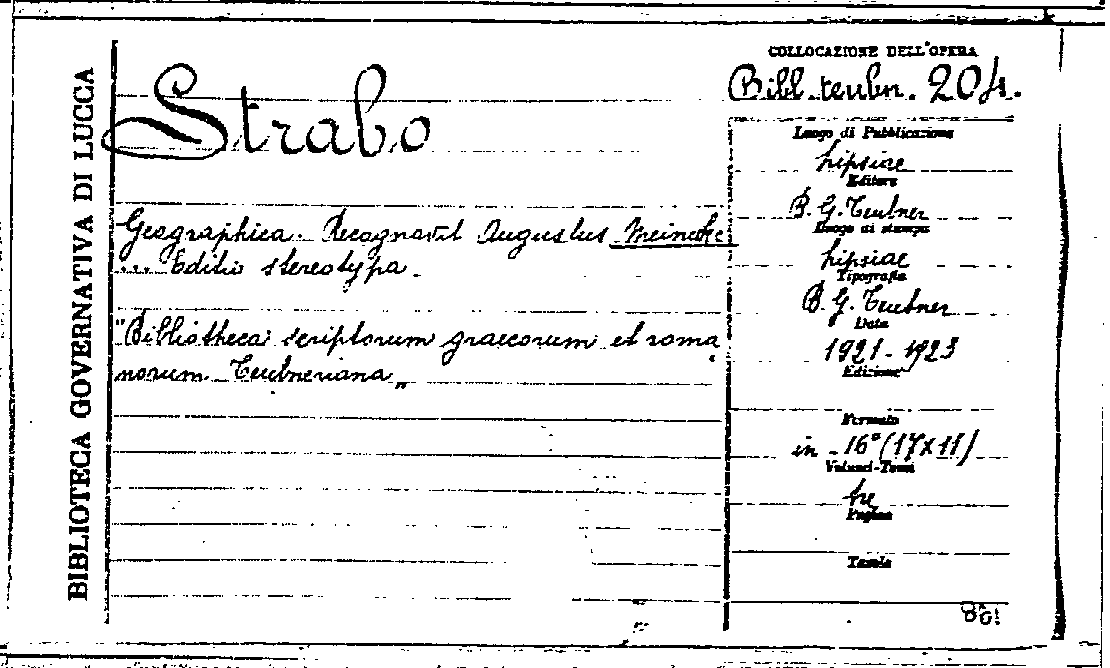 BIBLIOTECA GOVERNATIVA DI LUCCA
Strabo
Geographica. Recognovit Augustus Meineke
... Editio stereotypa.
"Bibliotheca scriptorum graecorum et roma
norum Teubneriana„
COLLOCAZIONE DELL'OPERA
Bibl. teubn. 204.
Luogo di Pubblicazione
Lipsiae
Editore
B. G. Teubner
Luogo di stampa
Lipsiae
Tipografia
B. G. Teubner
Data
1921-1923
Edizione
Formato
in-16° (17x11)
Volumi-Tomi
tre
Pagine
Tavole